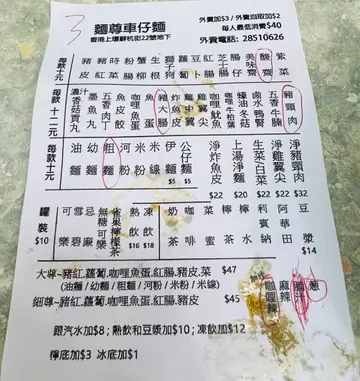 3
麵尊車仔麵
香港上環蘇杭街22號地下
外賣加$3 / 外賣自取加$2
每人最低消費$40
外賣電話: 28510626
每款十元
豬皮
豬紅
時菜
粉腸
蟹柳
生根
獅子狗
蘿蔔
紅腸
芝士腸
腸仔
美味齋
酸菜
紫菜
每款十二元
冬菇
貢丸
墨魚丸
五香肉丁
魚皮餃
咖哩魚蛋
豬大腸
炸魚皮
雞中翼
雞翼尖
咖哩魷魚
咖哩牛柏葉
蠔油冬菇
滷水鴨腎
五香牛腩
豬頸肉
每款十元
油麵
幼麵
粗麵
河粉
米粉
米線
伊麵 $5
公仔麵 $5
淨炸魚皮 $22
上湯淨 $20
生菜 $22
淨雞翼尖 $22
淨豬頸肉 $32
罐裝 $10
可樂
雪碧
忌廉
無糖可樂
雀巢檸檬茶
熱飲 $16
凍飲 $18
奶茶
咖啡
檸蜜
檸茶
檸水
利賓納
阿華田
豆漿 $14
大尊~豬紅,蘿蔔,咖哩魚蛋,紅腸,豬皮,菜 $47
(油麵 / 幼麵 / 粗麵 / 河粉 / 米粉 / 米線)
細尊~豬紅,咖哩魚蛋,紅腸,豬皮 $45
咖喱辣
麻辣
蔥
銀汽水加$8 ; 熱飲和豆漿加$10 ; 凍飲加$12
檸底加$3 冰底加$1